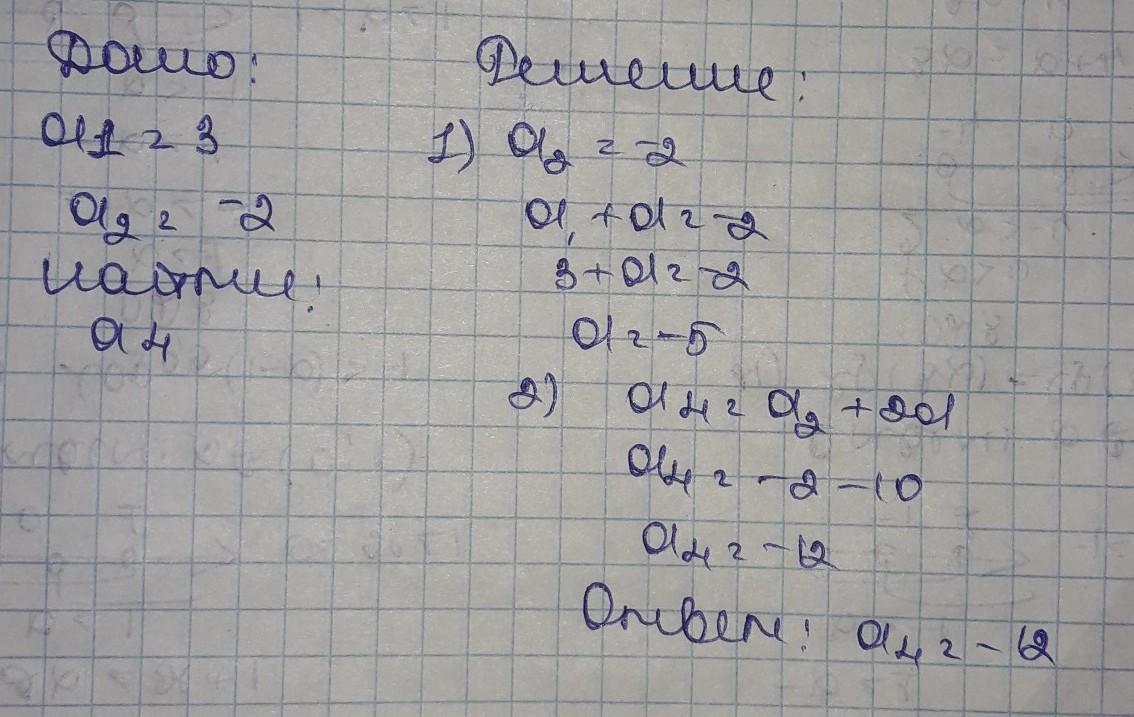 Дано:
a1 = 3
a2 = -2
Найти:
a4
Решение:
1) a2 = -2
a1 + d = -2
3 + d = -2
d = -5
2) a4 = a2 + 2d
a4 = -2 - 10
a4 = -12
Ответ: a4 = -12